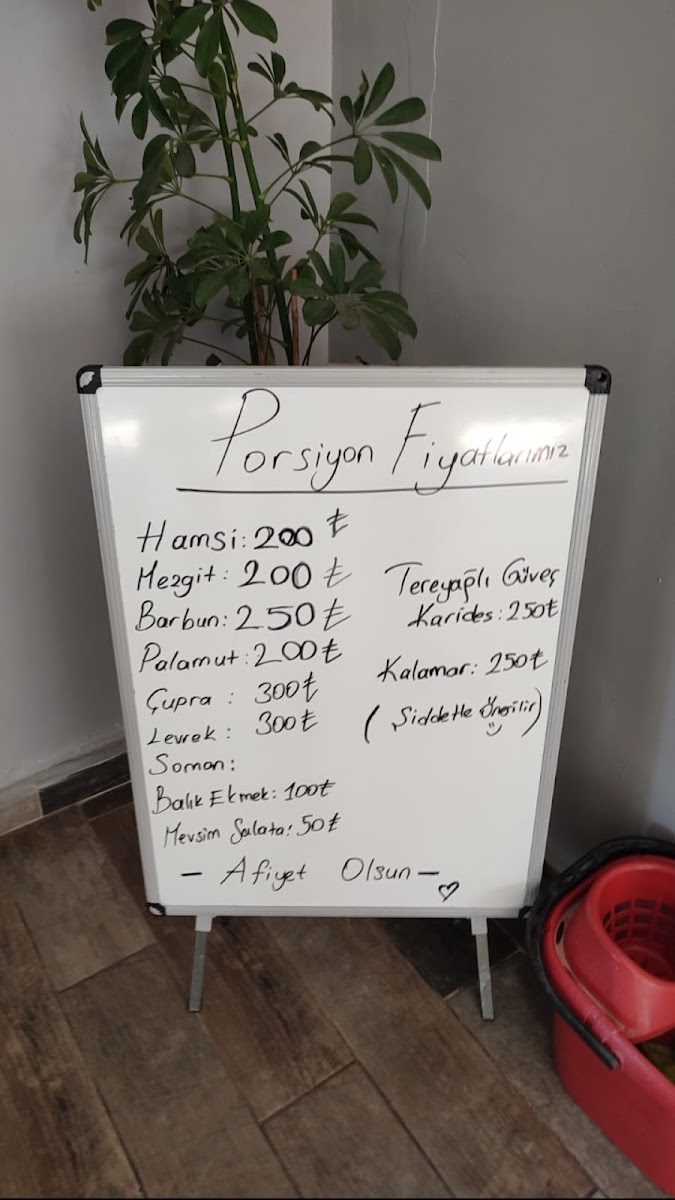 Porsiyon Fiyatlarımız
Hamsi: 200 ₺
Mezgit: 200 ₺
Barbun: 250 ₺
Palamut: 200 ₺
Çupra : 300 ₺
Levrek : 300 ₺
Somon :
Balık Ekmek: 100 ₺
Mevsim Salata: 50 ₺
Tereyağlı Güveç
Karides: 250 ₺
Kalamar: 250 ₺
( Şiddetle Önerilir)
- Afiyet Olsun - ♡